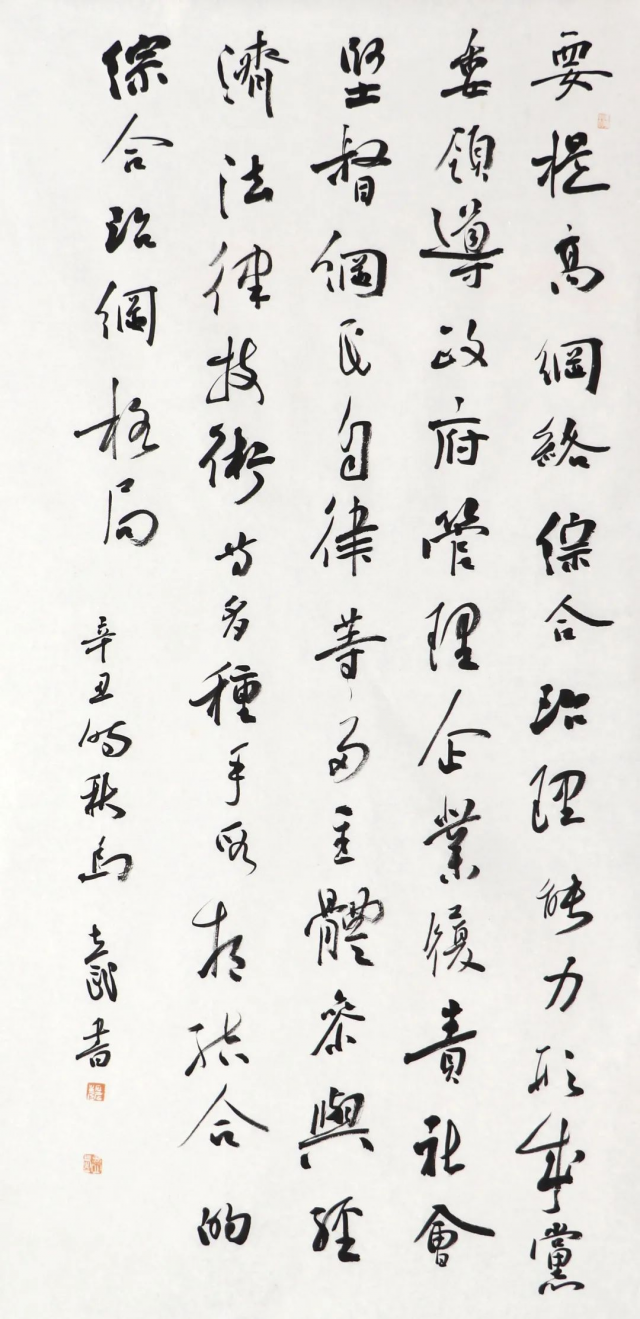 要提高網絡綜合治理能力形成黨
委領導政府管理企業履責社會
監督網民自律等多主體參與經
濟法律技術等多種手段相結合的
綜合治網格局
辛丑 秋 書